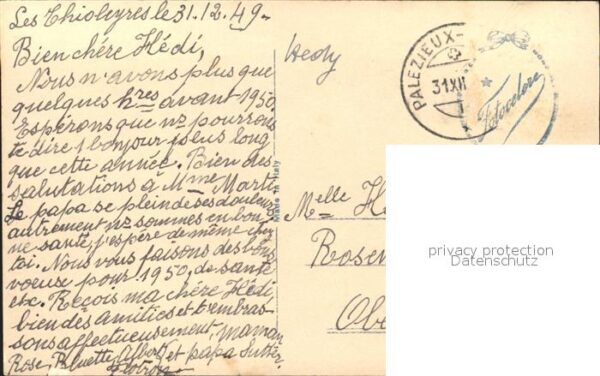 Les Thioleyres le 31.12.49.
Bien chère Hédi,
Nous n'avons plus que
quelques hres avant 1950.
Espérons que ns pourrons
te dire 1 bonjour plus long
que cette année. Bien des
salutations à Mme Marti.
Le papa se plein de ses douleurs
autrement ns sommes en bon-
ne santé, j'espère de même chez
toi. Nous vous faisons des bons
voeux pour 1950, de santé
etc. Reçois ma chère Hédi,
bien des amitiés et t'embras-
sons affectueusement, maman
Rose, Bluette, Albert, et papa Sutter.
Hedy
PALEZIEUX-
31 XII
Fotocelere
Made in Italy
Melle H
Rosen
Obe
privacy protection
Datenschutz